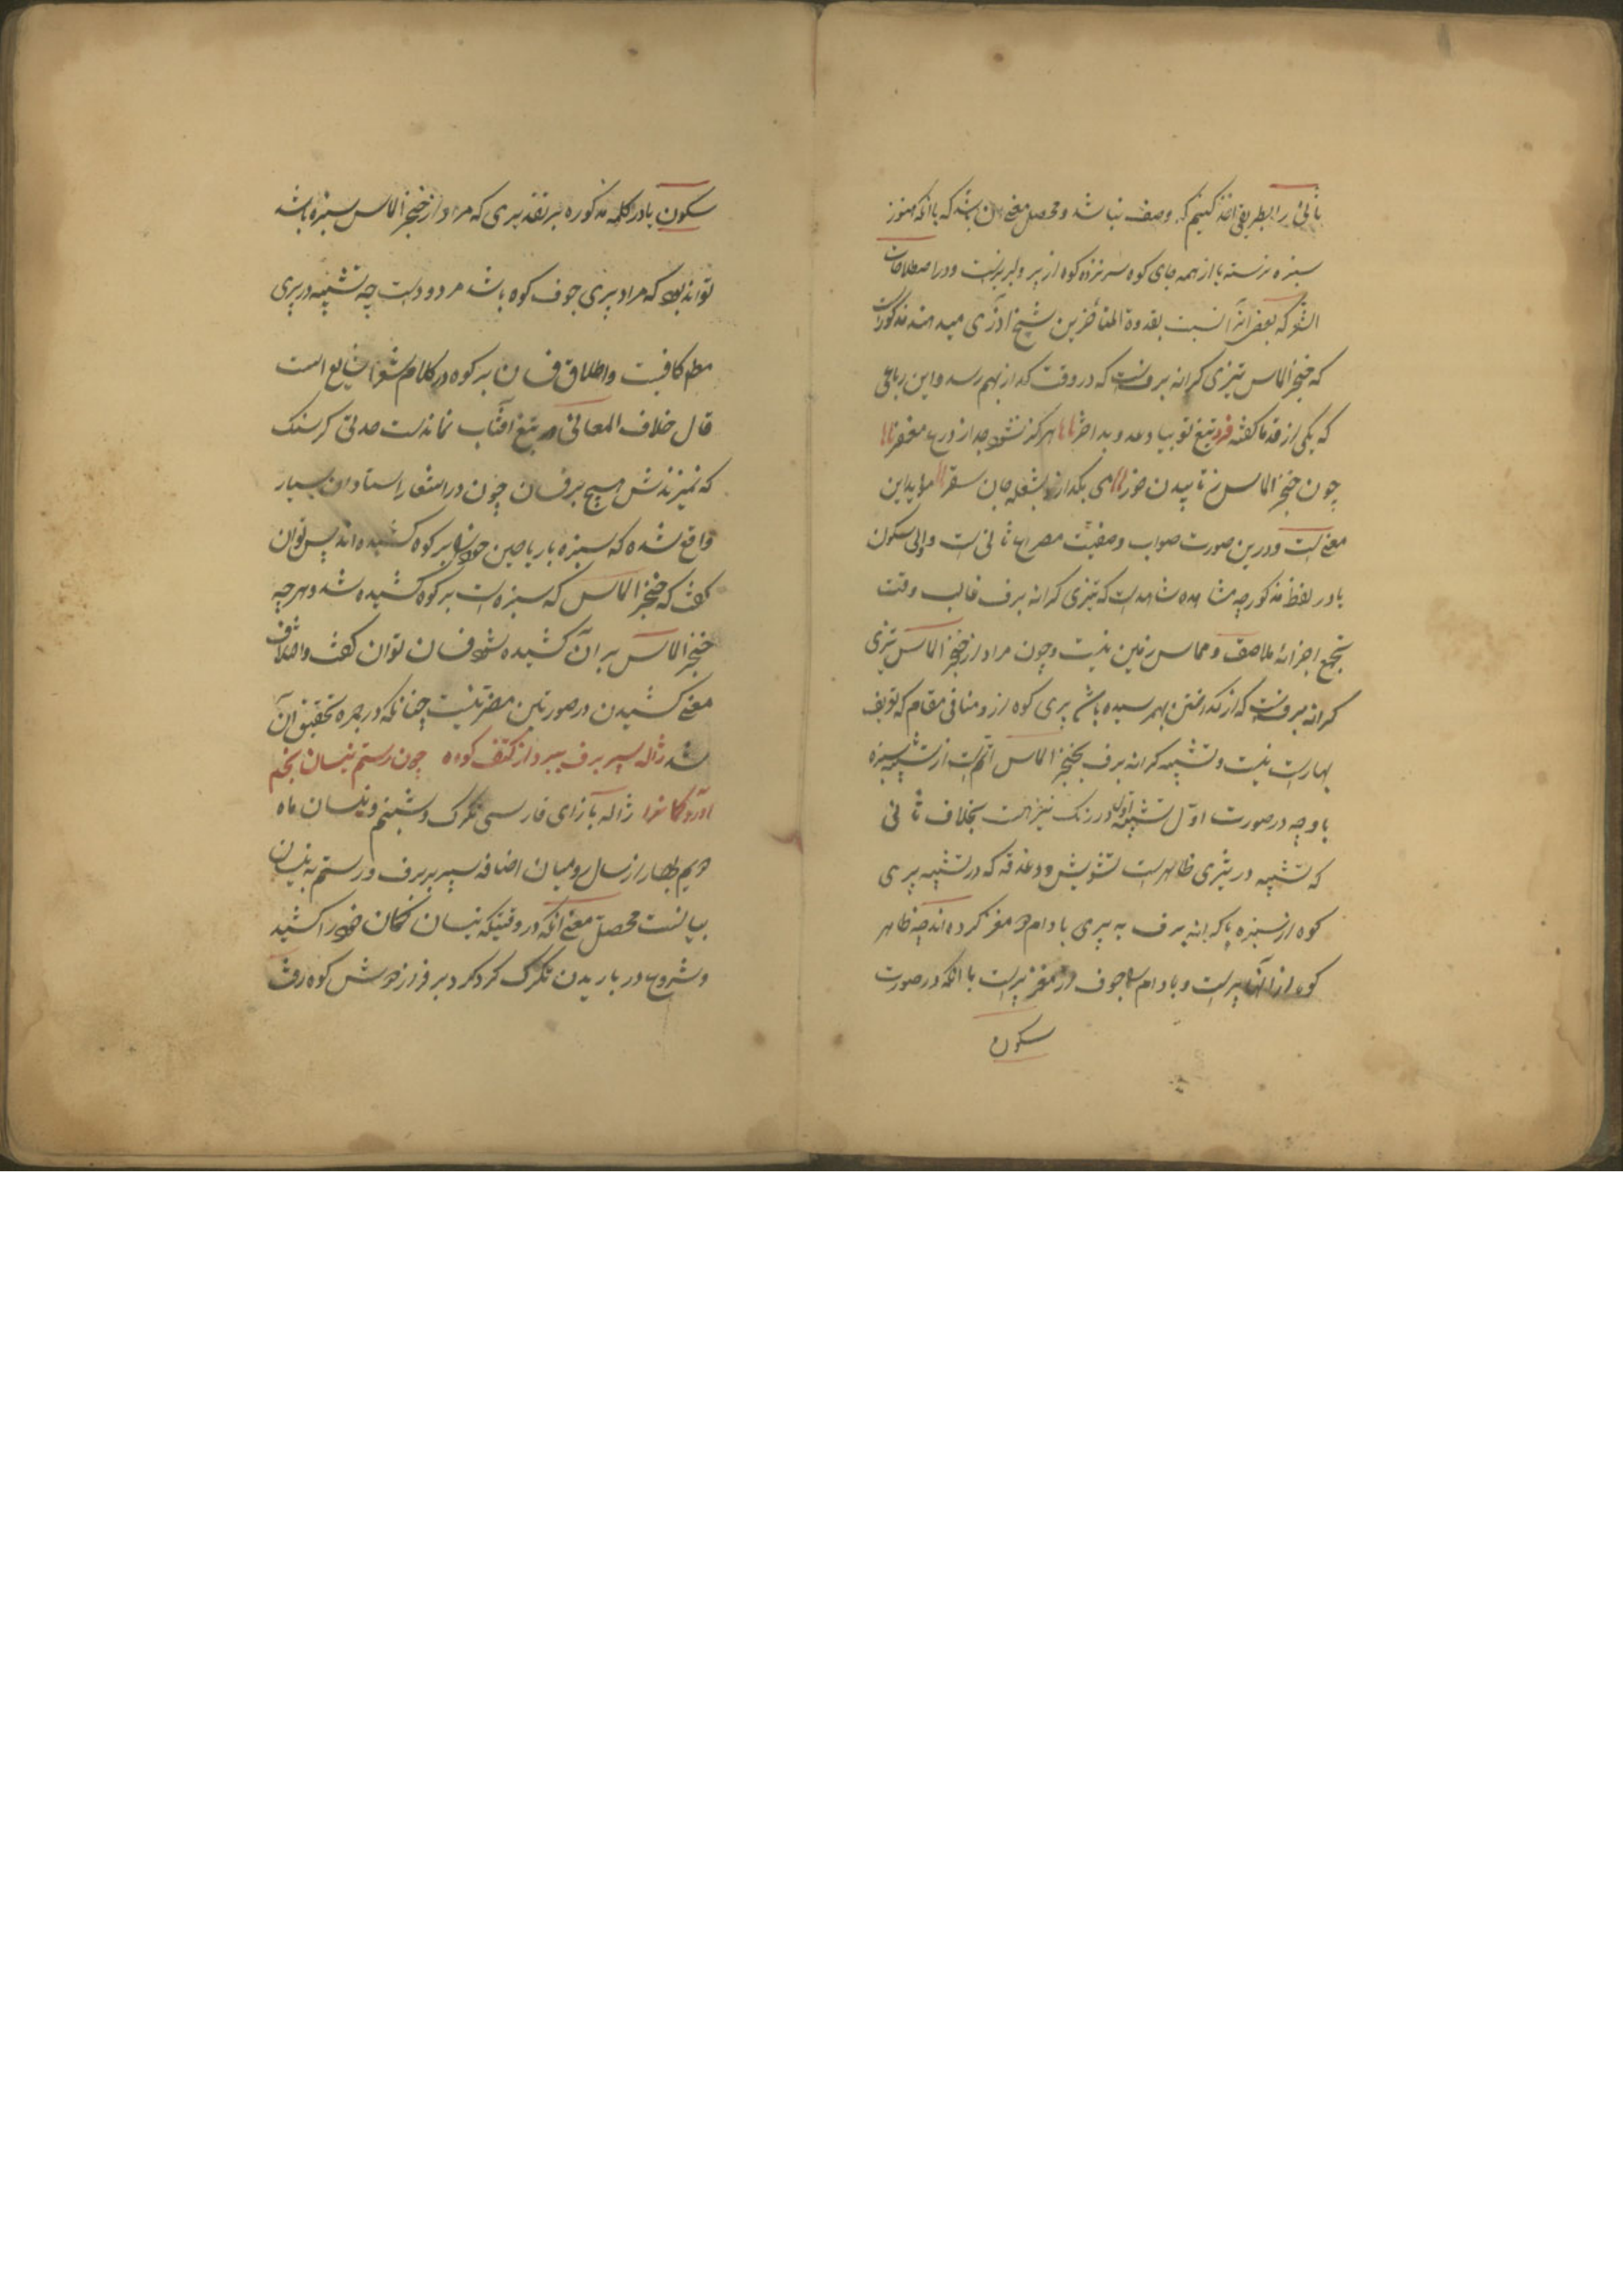 ثانی را بطریقی اخذ کنیم که وصف نباشد و محصل معنی آن باشد که با آنکه هنوز
سبزه نرسته با از همه جای کوه سر نزده کوه از پر و لبریزست و در اصطلاحات
الشعر که بعضی آنرا نسبت بقدوة المتأخرین شیخ آذری میدهند مذکورست
که خنجر الماس تیزی کرانه برفست که در وقت گداز بهم رسد و این رباعی
که یکی از قدما گفته فرد تیغ تو بیا وعد و بد اختر را هرگز نشود جدا ز درع مغفر را
چون خنجر الماس ز تابیدن خور می بگدازد بشعله جان سقر را مؤید این
معنی است و درین صورت صواب وصفیت مصراع ثانی است و الی سکون
با در لفظ مذکور چه مشاهده شاهدست که تیزی کرانه برف غالب وقت
تجمع اجزاء ملاصق و مماس زمین نیست و چون مراد از خنجر الماس تیزی
کرانه برفست که از گداختن بهم رسیده باشد پری کوه از و منافی مقام که تعریف
بهارست نیست و تشبیه کرانه برف بخنجر الماس اتمست از تشبیه سبزه
با و چه در صورت اول تشبیه اول در رنگ نیز هست بخلاف ثانی
که تشبیه در تیزی ظاهرست تشویش و دغدغه که در تشبیه پری
کوه از سبزه یا کرانه برف به پری بادام دو مغز کرده اند چه ظاهر
کوه از آنها پرست و بادام را جوف از مغز پرست با آنکه در صورت
سکون
سکون با در کلمه مذکوره بر تقدیری که مراد از خنجر الماس سبزه باشد
تواند بود که مراد پری جوف کوه باشد مردودست چه تشبیه در پری
مطلق کافیست و اطلاق فسان بر کوه در کلام شعرا شایع است
قال خلاف المعانی تیغ آفتاب نماندست حدتی گر سنگ
که نمیزندش هیچ بر فسان چون در اشعار استادان بسیار
واقع شده که سبزه با ریاحین خود را بر کوه کشیده اند پس توان
گفت که خنجر الماس که سبزه است بر کوه کشیده شد و هر چه
خنجر الماس بر آن کشیده شود فسان توان گفت و اختلاف
معنی کشیدن در صورتین مضر نیست چنانکه در جره تحقیق آن
شد ژاله سپر برف ببرد از کتف کوه چون رستم نیسان بخم
آورد کمانرا ژاله با زای فارسی تگرک و شبنم و نیسان ماه
دویم بهار از سال رومیان اضافه سپر ببرف و رستم به نیسان
بیانست محصل معنی آنکه در وقتیکه نیسان کمان خود را کشید
و شروع در باریدن تگرک کرد گرد بر فراز دوش کوه رفت